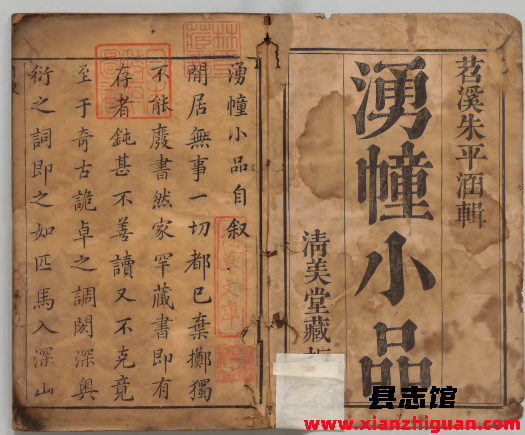 苕溪朱平涵輯
湧幢小品
清美堂藏
湧幢小品自叙
閒居無事一切都已棄擲獨
不能廢書然家罕藏書即有
存者鈍甚不善讀又不克竟
至于奇古詭卓之調閎深奥
衍之詞即之如匹馬入深山
县志馆
www.xianzhiguan.com